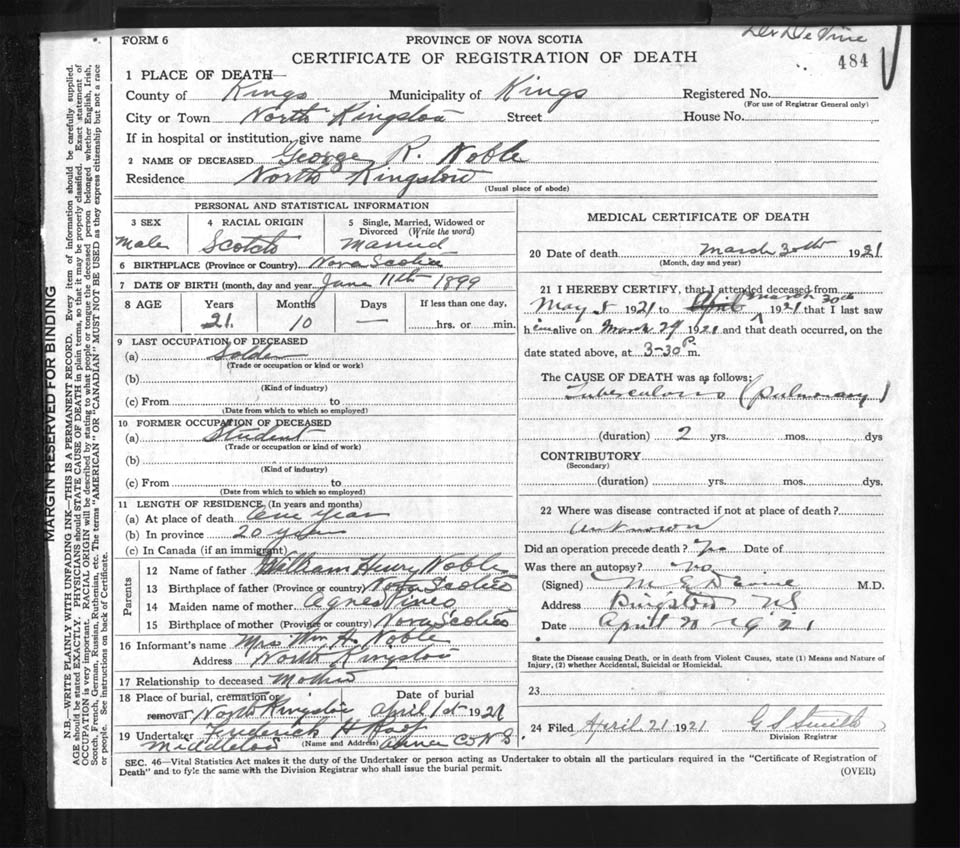 FORM 6
PROVINCE OF NOVA SCOTIA
Dr DeVine
CERTIFICATE OF REGISTRATION OF DEATH
484
1 PLACE OF DEATH—
County of Kings Municipality of Kings Registered No.
(For use of Registrar General only)
City or Town North Kingston Street House No.
If in hospital or institution, give name
2 NAME OF DECEASED George R. Noble
Residence North Kingston
(Usual place of abode)
PERSONAL AND STATISTICAL INFORMATION
3 SEX 4 RACIAL ORIGIN 5 Single, Married, Widowed or
Divorced (Write the word)
Male Scotch Married
6 BIRTHPLACE (Province or Country) Nova Scotia
7 DATE OF BIRTH (month, day and year) June 11th 1899
8 AGE Years Months Days If less than one day,
21 10 — hrs. or min.
9 LAST OCCUPATION OF DECEASED
(a) Solder
(Trade or occupation or kind or work)
(b)
(Kind of industry)
(c) From to
(Date from which to which so employed)
10 FORMER OCCUPATION OF DECEASED
(a) Student
(Trade or occupation or kind of work)
(b)
(Kind of industry)
(c) From to
(Date from which to which so employed)
11 LENGTH OF RESIDENCE (In years and months)
(a) At place of death One year
(b) In province 20 years
(c) In Canada (if an immigrant)
Parents
12 Name of father William Henry Noble
13 Birthplace of father (Province or country) Nova Scotia
14 Maiden name of mother Agnes Pineo
15 Birthplace of mother (Province or Country) Nova Scotia
16 Informant's name Mrs Wm H. Noble
Address North Kingston
17 Relationship to deceased Mother
18 Place of burial, cremation or Date of burial
removal North Kingston April 1st 1921
19 Undertaker Frederick H
(Name and Address)
Middleton Anna Co N S
MEDICAL CERTIFICATE OF DEATH
20 Date of death March 30th 1921
(Month, day and year)
21 I HEREBY CERTIFY, that I attended deceased from
May 1921 to April March 30th 1921 that I last saw
him alive on March 29 1921 and that death occurred, on the
date stated above, at 3-30 P. m.
The CAUSE OF DEATH was as follows:
Tuberculosis (pulmonary)
(duration) 2 yrs. mos. dys
CONTRIBUTORY
(Secondary)
(duration) yrs. mos. dys.
22 Where was disease contracted if not at place of death?
Unknown
Did an operation precede death? No Date of
Was there an autopsy? No
(Signed) M E DeVine M.D.
Address Kingston NS
Date April 20 1921
State the Disease causing Death, or in death from Violent Causes, state (1) Means and Nature of
Injury, (2) whether Accidental, Suicidal or Homicidal.
23
24 Filed April 21 1921 G S Smith
Division Registrar
SEC. 46—Vital Statistics Act makes it the duty of the Undertaker or person acting as Undertaker to obtain all the particulars required in the "Certificate of Registration of
Death" and to fyle the same with the Division Registrar who shall issue the burial permit.
(OVER)
MARGIN RESERVED FOR BINDING
N.B.—WRITE PLAINLY WITH UNFADING INK—THIS IS A PERMANENT RECORD. Every item of information should be carefully supplied.
AGE should be stated EXACTLY. PHYSICIANS should STATE CAUSE OF DEATH in plain terms, so that it may be properly classified. Exact statement of
OCCUPATION is very important. RACIAL ORIGIN will be described by stating to what people or tongue the deceased person belonged whether English, Irish,
Scotch, French, German, Russian, Ruthenian, etc. The terms "AMERICAN" OR "CANADIAN" MUST NOT BE USED as they express citizenship but not a race
or people. See instructions on back of Certificate.